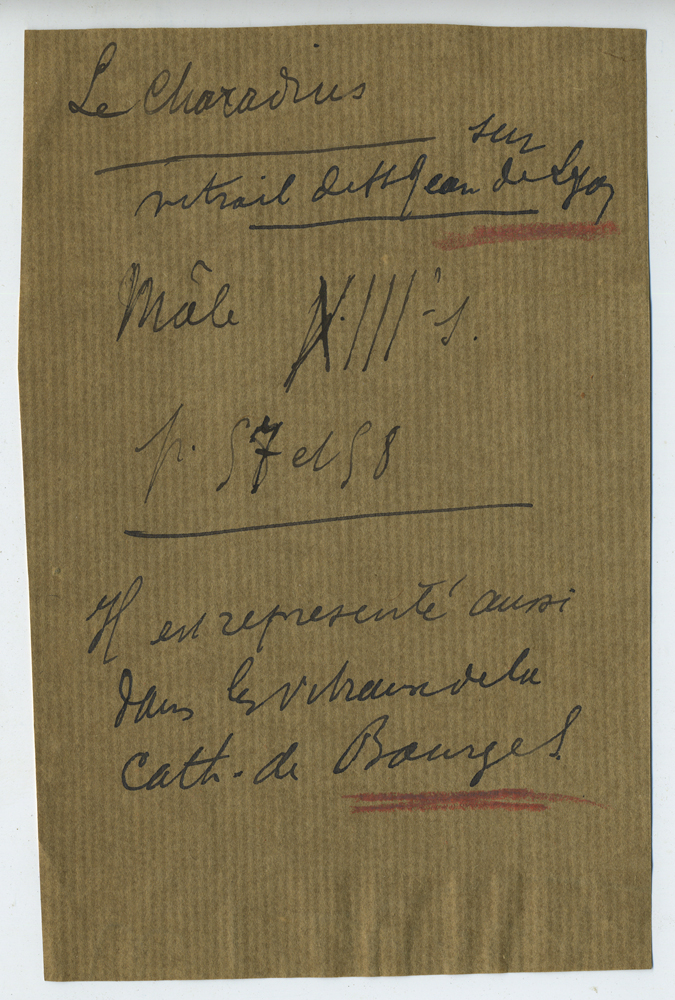 Le Charadrius
sur
vitrail de St Jean de Lyon
Mâle XIIIe s.
p. 57 et 58
Il est représenté aussi
dans les vitraux de la
Cath. de Bourges.